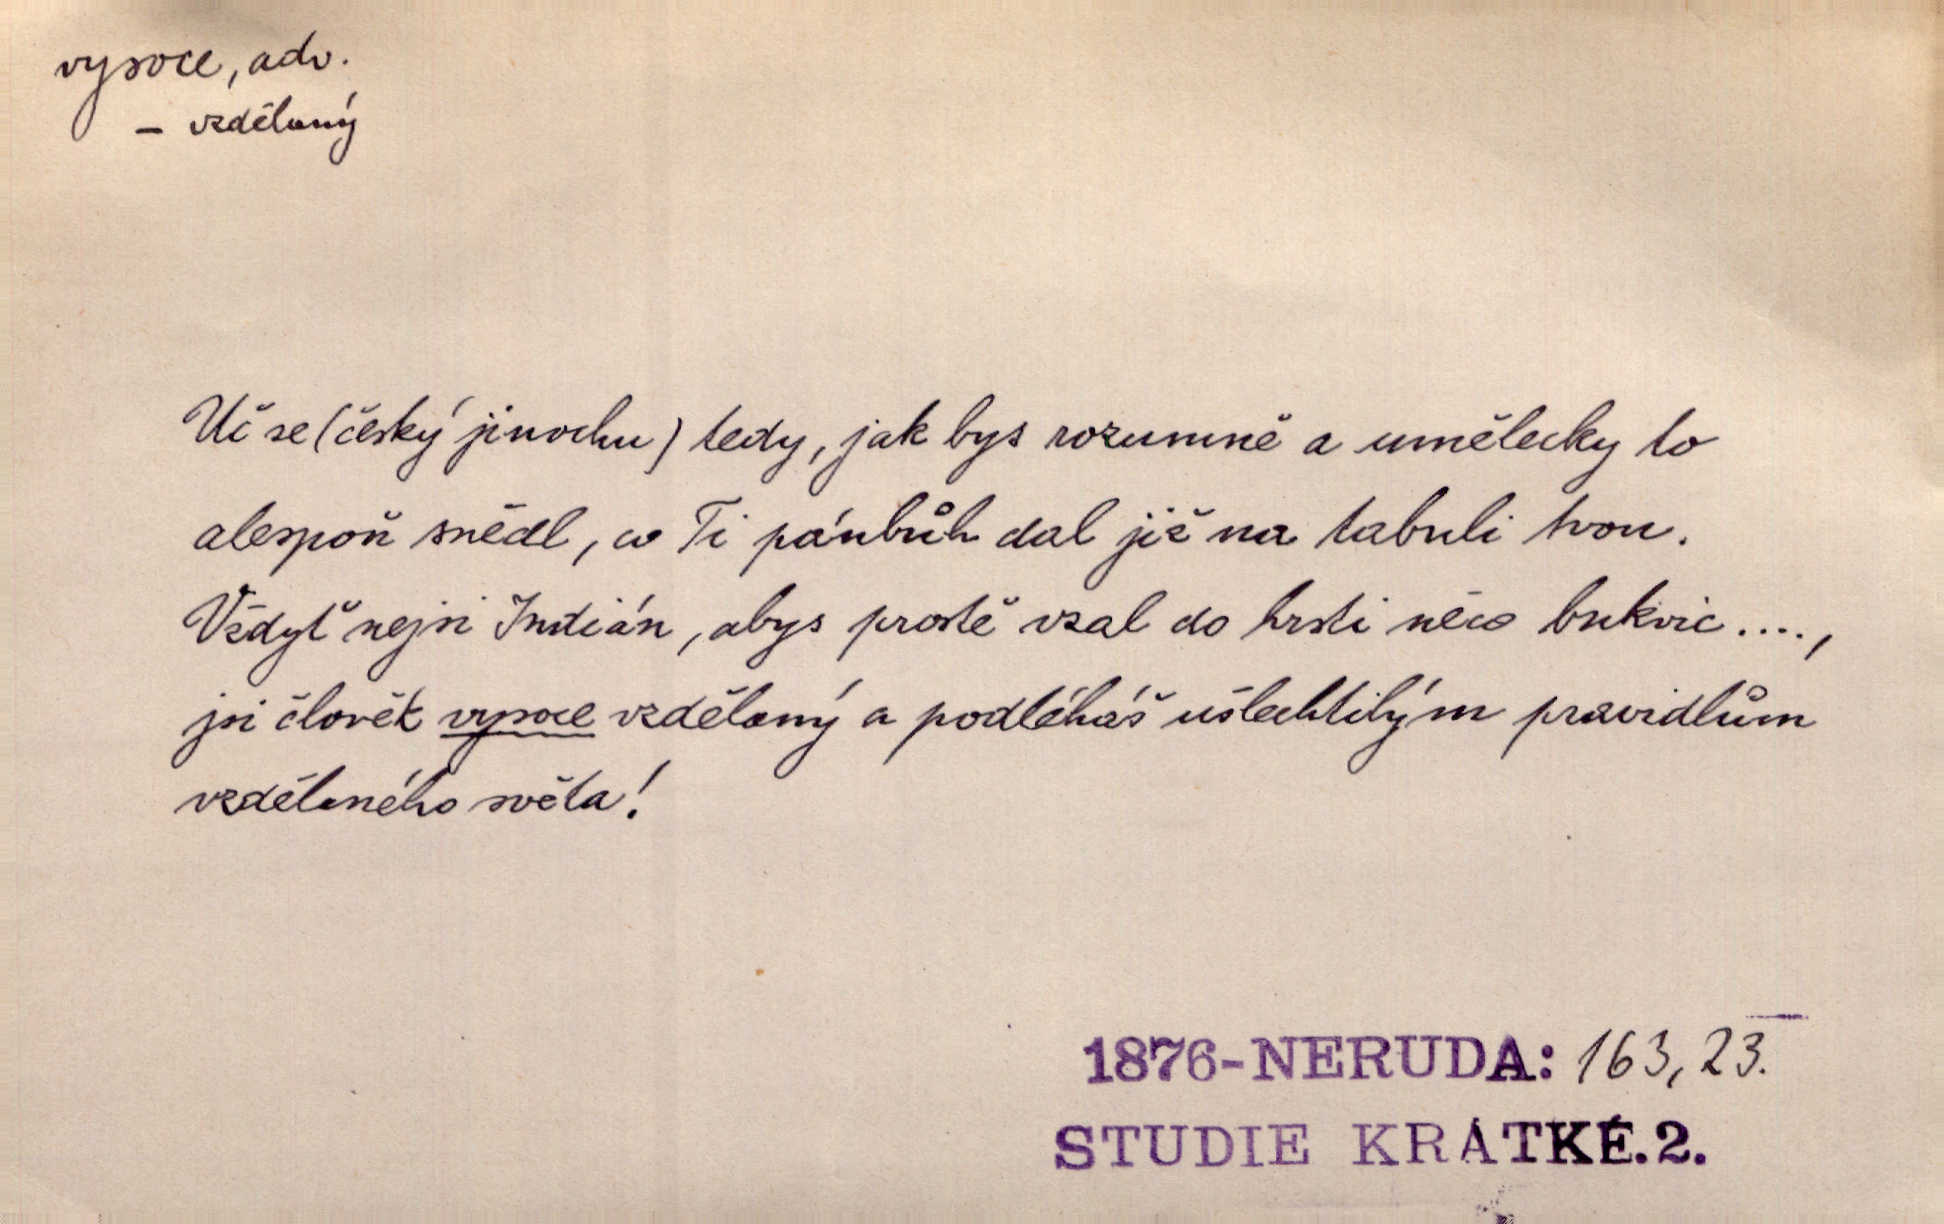 vysoce, adv.
– vzdělaný
Uč se (český jinochu) tedy, jak bys rozumně a umělecky to
alespoň snědl, co Ti pánbůh dal již na tabuli tvou.
Vždyť nejsi Indián, abys prostě vzal do hrsti něco bukvic....,
jsi člověk vysoce vzdělaný a podléháš ušlechtilým pravidlům
vzdělaného světa!
1876-NERUDA: 163, 23.
STUDIE KRÁTKÉ.2.